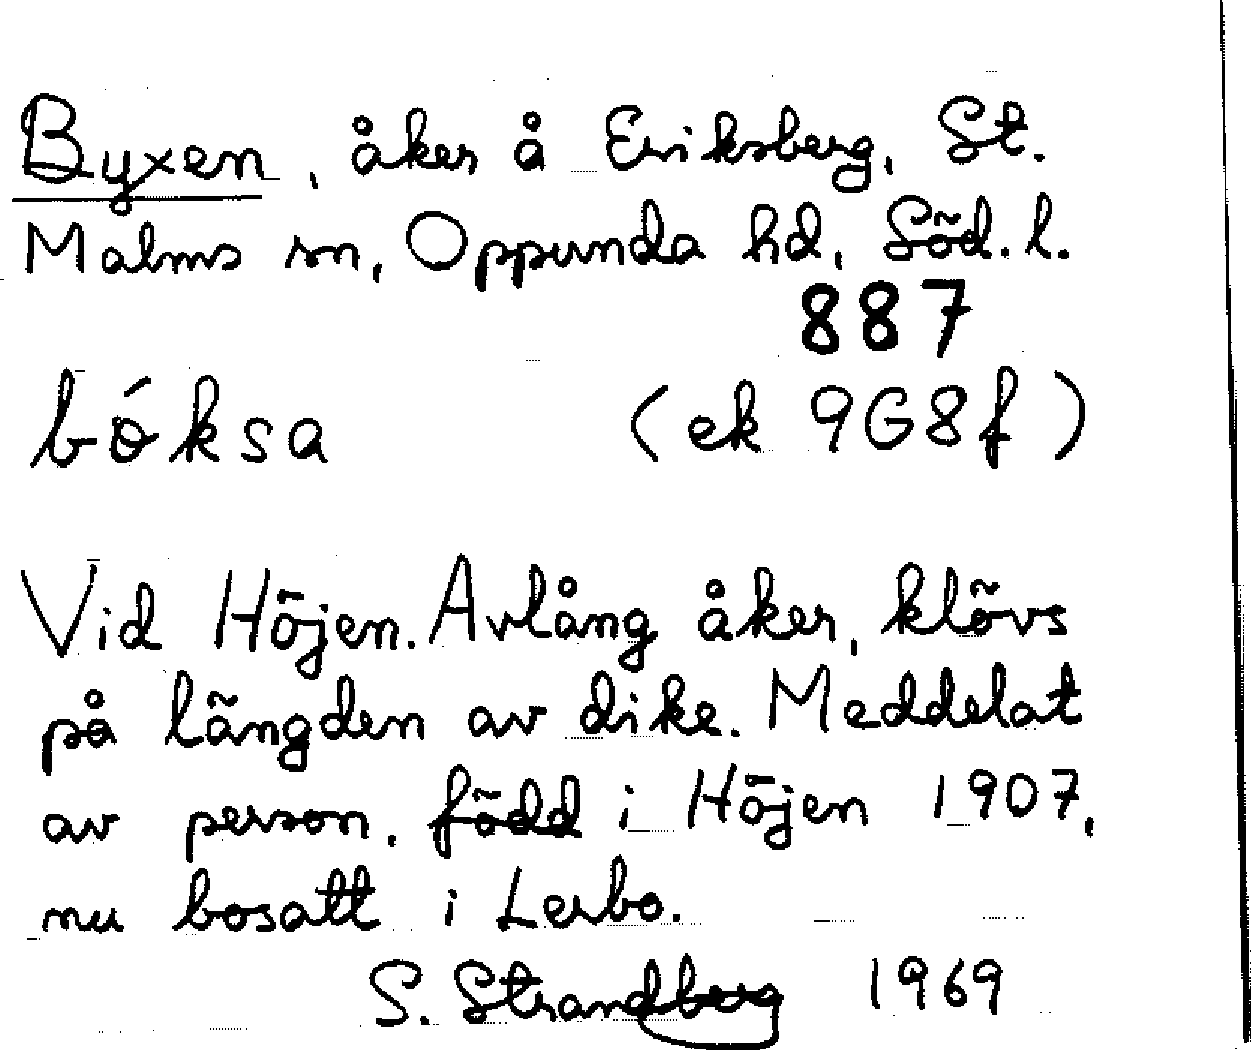 Byxen, åker å Eriksberg, St.
Malms sn, Oppunda hd, Söd. l.
887
bóksa (ek 9G8f)
Vid Höjen. Avlång åker, klövs
på längden av dike. Meddelat
av person. född i Höjen 1907,
nu bosatt i Lerbo.
S. Strandberg 1969